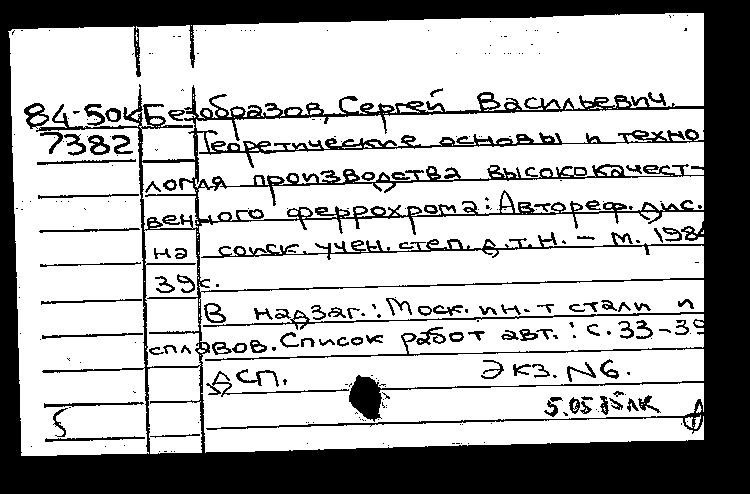 84-50к Безобразов, Сергей Васильевич.
7382 Теоретические основы и техно
логия производства высококачест-
венного феррохрома: Автореф. дис.
на соиск. учен. степ. д.т.н. - М., 198
39 с.
В надзаг.: Моск. ин-т стали и
сплавов. Список работ авт.: с. 33-39
ДСП. Экз. N6.
5